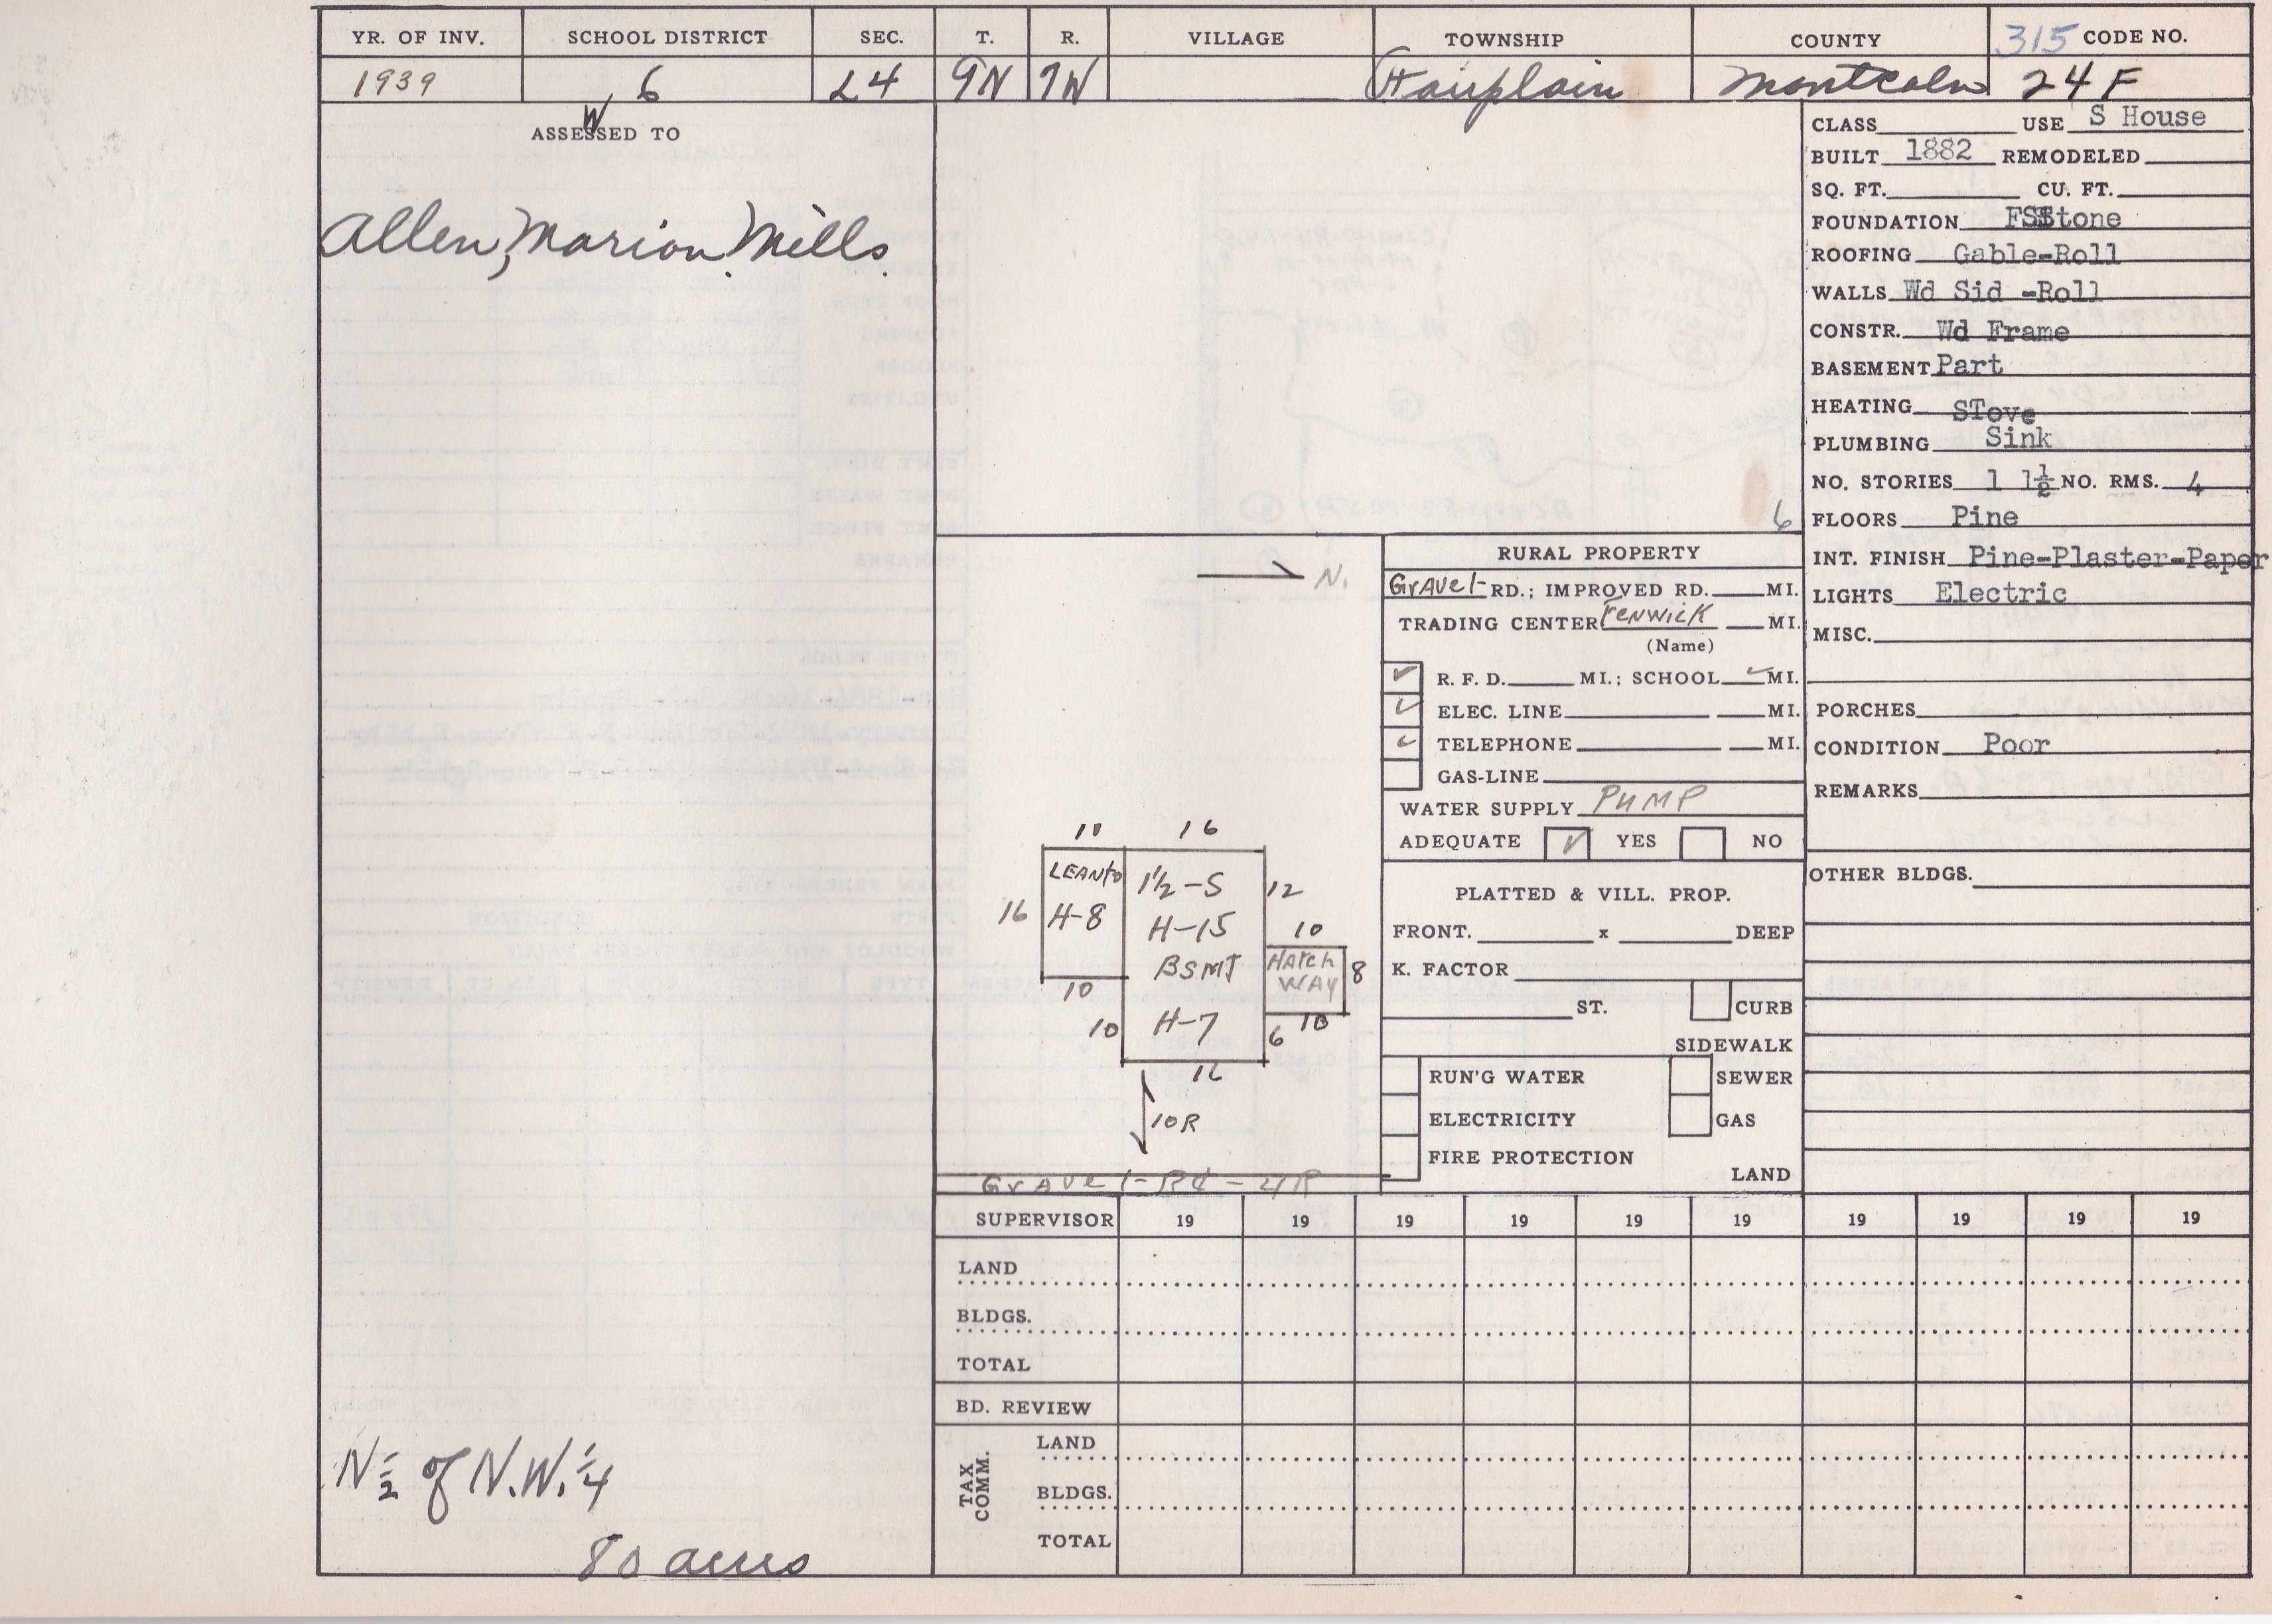 YR. OF INV. SCHOOL DISTRICT SEC. T. R. VILLAGE TOWNSHIP COUNTY 315 CODE NO.
1939 6 24 9N 7W Fairplain Montcalm 24 F
W
ASSESSED TO
Allen, Marion Mills
N 1/2 of N.W. 1/4
80 acres
6
→ N.
10 16
LEANto 1½-S 12
16 H-8 H-15 10
BSMT HATCH WAY 8
10
10 H-7 6 10
16
10R
Gravel-Rd-4R
RURAL PROPERTY
GrAvel RD.; IMPROVED RD. MI.
TRADING CENTER Fenwick MI.
(Name)
✓ R. F. D. MI.; SCHOOL ✓ MI.
✓ ELEC. LINE MI.
✓ TELEPHONE MI.
GAS-LINE
WATER SUPPLY PUMP
ADEQUATE ✓ YES NO
PLATTED & VILL. PROP.
FRONT. x DEEP
K. FACTOR
ST. CURB
SIDEWALK
RUN'G WATER SEWER
ELECTRICITY GAS
FIRE PROTECTION
LAND
CLASS USE S House
BUILT 1882 REMODELED
SQ. FT. CU. FT.
FOUNDATION FSStone
ROOFING Gable-Roll
WALLS Wd Sid -Roll
CONSTR. Wd Frame
BASEMENT Part
HEATING STove
PLUMBING Sink
NO. STORIES 1 1½ NO. RMS. 4
FLOORS Pine
INT. FINISH Pine-Plaster-Paper
LIGHTS Electric
MISC.
PORCHES
CONDITION Poor
REMARKS
OTHER BLDGS.
SUPERVISOR 19 19 19 19 19 19 19 19 19 19
LAND
BLDGS.
TOTAL
BD. REVIEW
TAX COMM.
LAND
BLDGS.
TOTAL